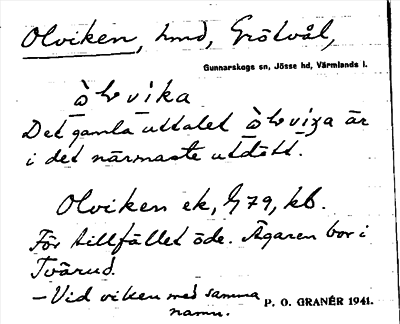 Olviken, hmd, Grötvål,
Gunnarskogs sn, Jösse hd, Värmlands l.
òlvika
Det gamla uttalet òlviga är
i det närmaste utdött.
Olviken ek, 79, kb.
För tillfället öde. Ägaren bor i
Tvärud.
– Vid viken med samma
namn.
P. O. GRANÉR 1941.